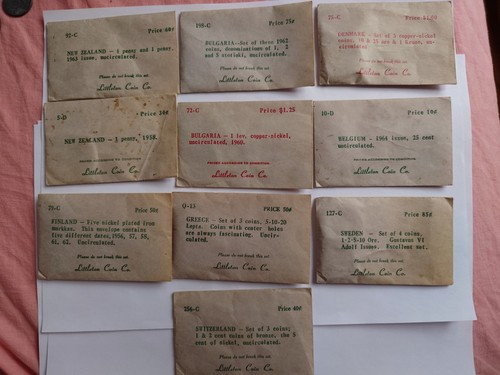 92-C Price 40¢
NEW ZEALAND - ½ penny and 1 penny,
1962 issue, uncirculated.
Please do not break this set
Littleton Coin Co.
198-C Price 75¢
BULGARIA-Set of three 1962
coins, denominations of 1, 2
and 5 stotinki, uncirculated.
Please do not break this set
Littleton Coin Co.
Price $1.50
DENMARK - Set of 3 copper-nickel
coins, 10 & 25 ore & 1 krone, un-
circulated.
Please do not break this set
Littleton Coin Co.
5-D Price 30¢
NEW ZEALAND - 1 penny, 1958.
PRICED ACCORDING TO CONDITION
Littleton Coin Co.
72-C Price $1.25
BULGARIA - 1 lev, copper-nickel,
uncirculated, 1960.
PRICED ACCORDING TO CONDITION
Littleton Coin Co.
10-D Price 10¢
BELGIUM - 1964 issue, 25 cent
uncirculated.
PRICED ACCORDING TO CONDITION
Littleton Coin Co.
79-C Price 50¢
FINLAND - Five nickel plated iron
markkas. This envelope contains
five different dates, 1956, 57, 58,
61, 62. Uncirculated.
Please do not break this set
Littleton Coin Co.
Q-13 PRICE 50¢
GREECE - Set of 3 coins, 5-10-20
Lepta. Coins with center holes
are always fascinating. Uncir-
culated.
Please do not break this set
Littleton Coin Co.
127-C Price 65¢
SWEDEN - Set of 4 coins,
1-2-5-10 Ore. Gustavus VI
Adolf issues. Excellent set.
Please do not break this set
Littleton Coin Co.
Price 40¢
SWITZERLAND - Set of 3 coins;
1 & 2 cent coins of bronze, the 5
cent of nickel, uncirculated.
Please do not break this set
Littleton Coin Co.